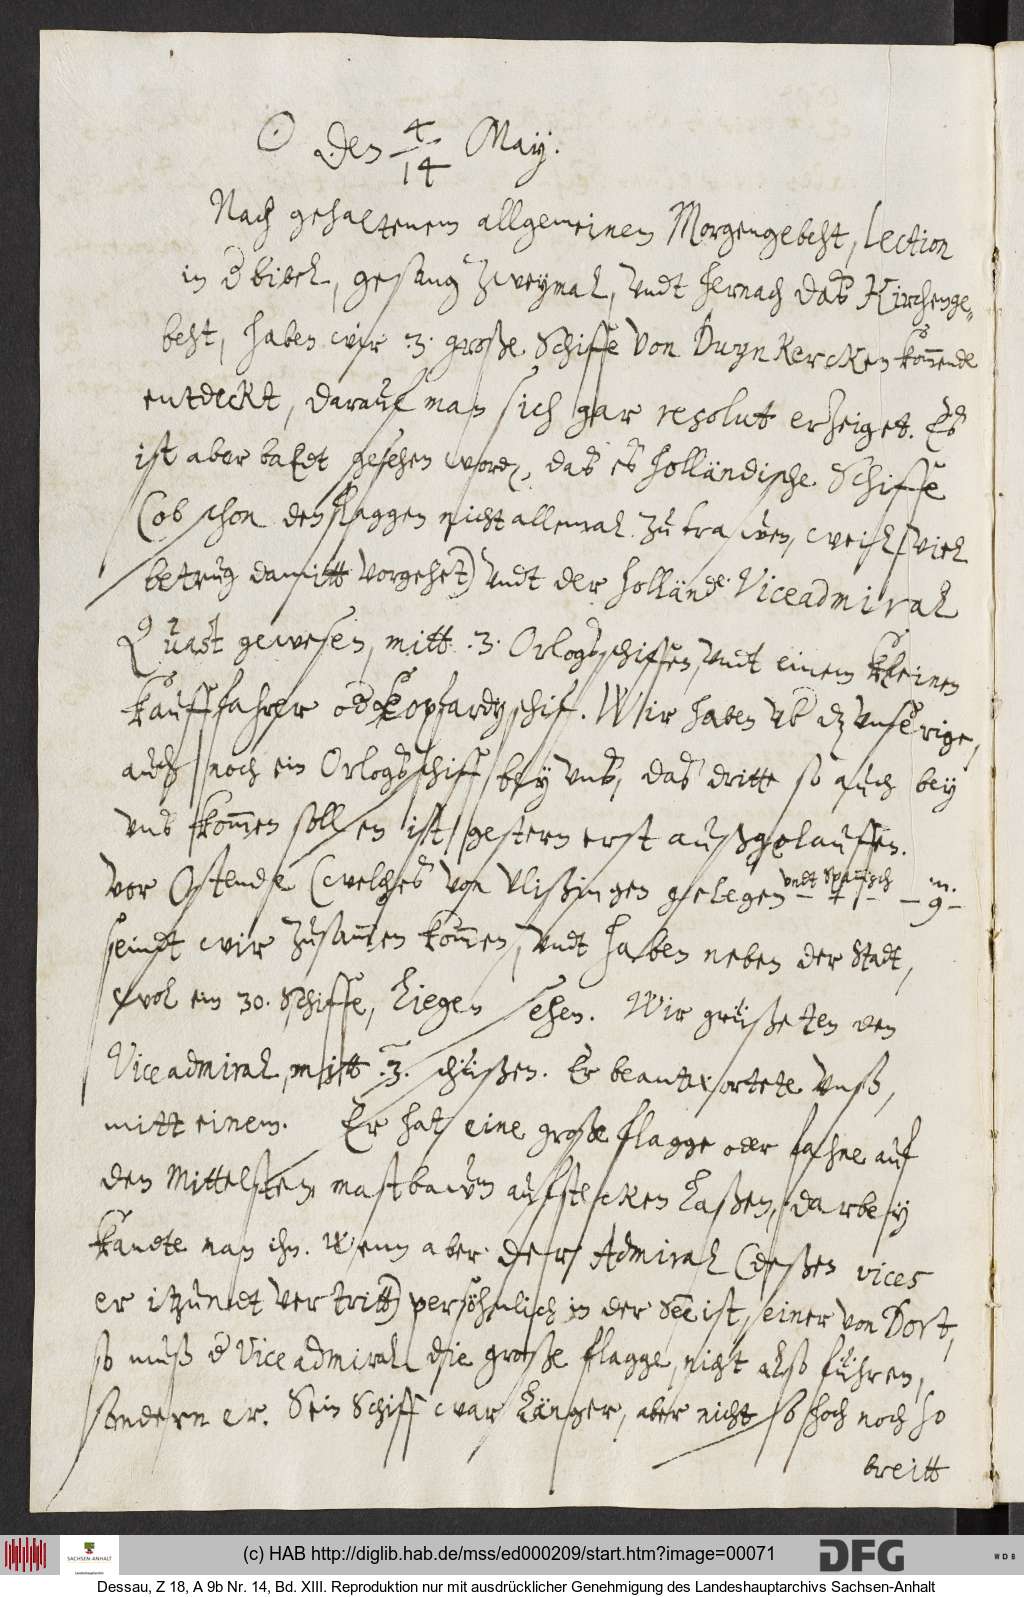 ☉ den 4/14 Maij.
Nach gehaltenem allgemeinen Morgengebeht, lection
in d bibel, gesang zweymal, undt hernach daß Kirchenge-
beht, haben wir .3. große Schiffe von Duynkercken kom̅ende
entdeckt, darauf man sich gar resolut erzeiget. Es
ist aber baldt gesehen word, daß es holländische Schiffe
(ob schon den flaggen nicht allemal zu trawen, weil viel
betrug damitt vorgehet) undt der holländ. Viceadmiral
Quast gewesen, mitt .3. Orlogsschiffen, undt einem kleinen
kauffahrer od kopfardyschif. Wir haben vb dz unserige,
auch noch ein Orlogsschiff bey uns, das dritte so auch bey
uns kom̅en sollen ist gestern erst außgelauffen.
Vor Ostende (welches von Vlißingen gelegen undt Spannisch ist) – 9 m. –
seindt wir zusam̅en kom̅en, undt haben neben der Stadt,
wol ein 30. Schiffe, liegen sehen. Wir grüßeten den
Viceadmiral, mitt .3. schüßen. Er beantwortete unß,
mitt einem. Er hat eine große flagge oder fahne auf
den Mittelsten mastbawm aufstecken laßen, darbey
kandte man ihn. Wenn aber der Admiral (deßen vices
er itzundt vertritt) persöhnlich in der See ist, einer von Dort,
so muß d Viceadmiral die große flagge, nicht also führen,
sondern er. Sein Schiff war länger, aber nicht so hoch noch so
breitt
(c) HAB http://diglib.hab.de/mss/ed000209/start.htm?image=00071
SACHSEN-ANHALT
DFG
WDB
Dessau, Z 18, A 9b Nr. 14, Bd. XIII. Reproduktion nur mit ausdrücklicher Genehmigung des Landeshauptarchivs Sachsen-Anhalt